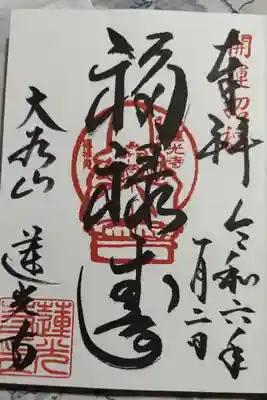 開運
奉拝
令和六年
一月二日
福禄寿
蓮光寺
大谷山
蓮光寺
蓮光